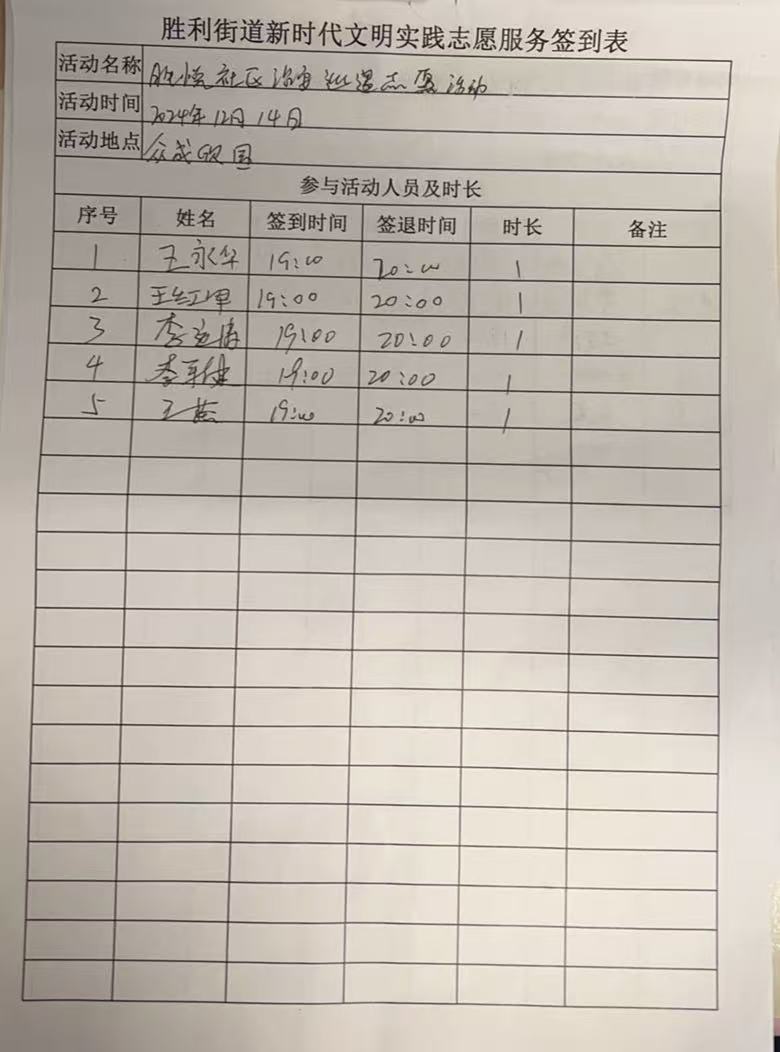 胜利街道新时代文明实践志愿服务签到表
活动名称 胜悦社区治安巡逻志愿活动
活动时间 2024年12月14日
活动地点 众成
参与活动人员及时长
序号 姓名 签到时间 签退时间 时长 备注
1 王永华 19:00 20:00 1
2 王红 19:00 20:00 1
3 李 19:00 20:00 1
4 李 19:00 20:00 1
5 王燕 19:00 20:00 1